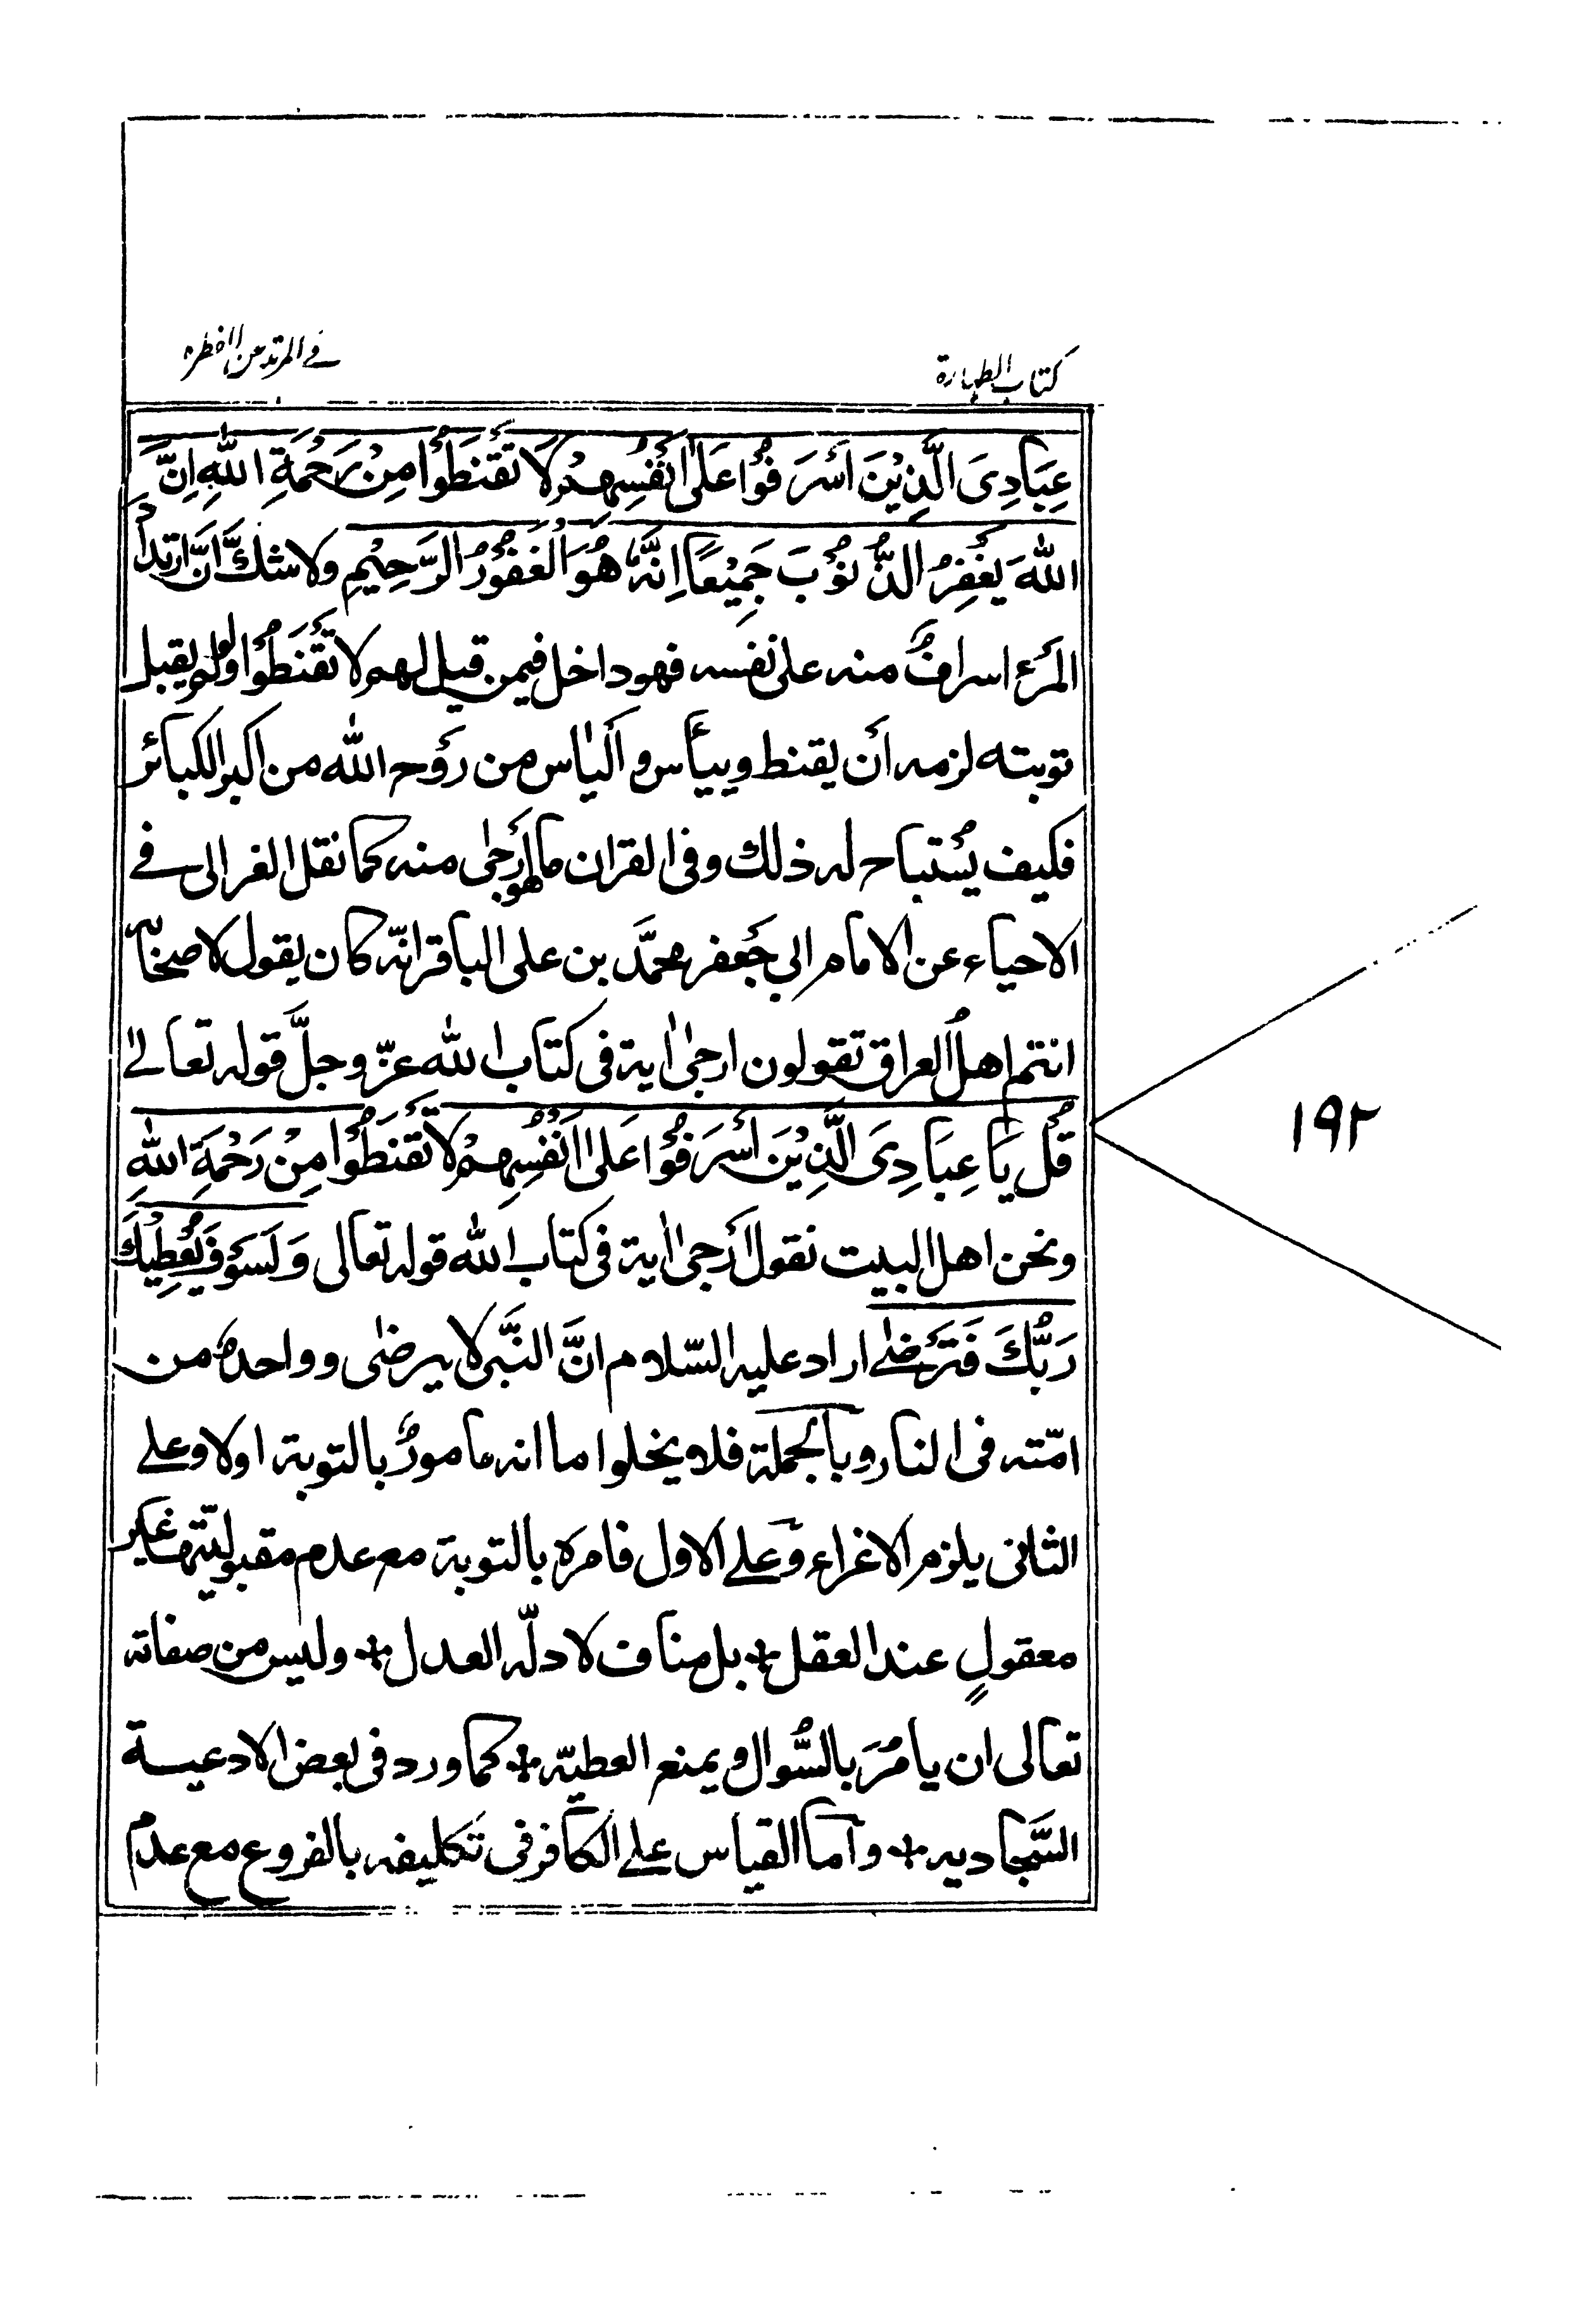 كتاب الطهارة
في المرتد عن الفطره
عِبَادِىَ الَّذِيْنَ اَسْرَفُوْا عَلىٰ اَنْفُسِهِمْ لَا تَقْنَطُوْا مِنْ رَحْمَةِ اللهِ اِنَّ
اللهَ يَغْفِرُ الذُّنُوْبَ جَمِيْعًا اِنَّهُ هُوَ الْغَفُوْرُ الرَّحِيْمِ ولا شكَّ اَنَّ ارتدادَ
المَرءِ اسرافٌ منه على نفسه فهو داخل فيمن قيل لهم لا تَقْنَطُوْا ولو لم يقبل
توبته لزمه أن يقنط وييأس و اَليٰاس من رَوْح الله من اكبر الكبائر
فكيف يُستباح له ذلك وفى القران ما هو أَرجىٰ منه كما نقل الغزالى في
الاحياء عن الامام ابي جَعفر محمَّد بن على الباقر انّه كان يقول لاصحابه
انتم اهلُ العراق تقولون ارجىٰ اٰية فى كتاب الله عزّ وجلَّ قوله تعالىٰ
قُل يَا عِبَادِىَ الَّذِيْنَ اَسْرَفُوْا عَلىٰ اَنْفُسِهِمْ لَا تَقْنَطُوْا مِنْ رَحْمَةِ اللهِ
ونحن اهل البيت نقول اَرجىٰ اٰية فى كتاب الله قوله تعالى وَلَسَوْفَ يُعْطِيْكَ
رَبُّكَ فَتَرْضٰى اراد عليه السّلام انَّ النَّبى لا يرضى وواحدٌ من
امّته فى النار وبالجملة فلا يخلوا ما انه مامورٌ بالتوبة اولا وعلى
الثانى يلزم الاغراء وعلى الاول فامره بالتوبة مع عدم مقبوليّتها غير
معقولٍ عند العقل بل مناف لادلّه العدل وليس من صفاته
تعالى ان يامُرَ بالسُّوال ويمنع العطيّه كما ورد فى بعض الادعية
السَّجاديه واَما القياس على الكافر فى تكليفه بالفروع مع عدم
١٩٢